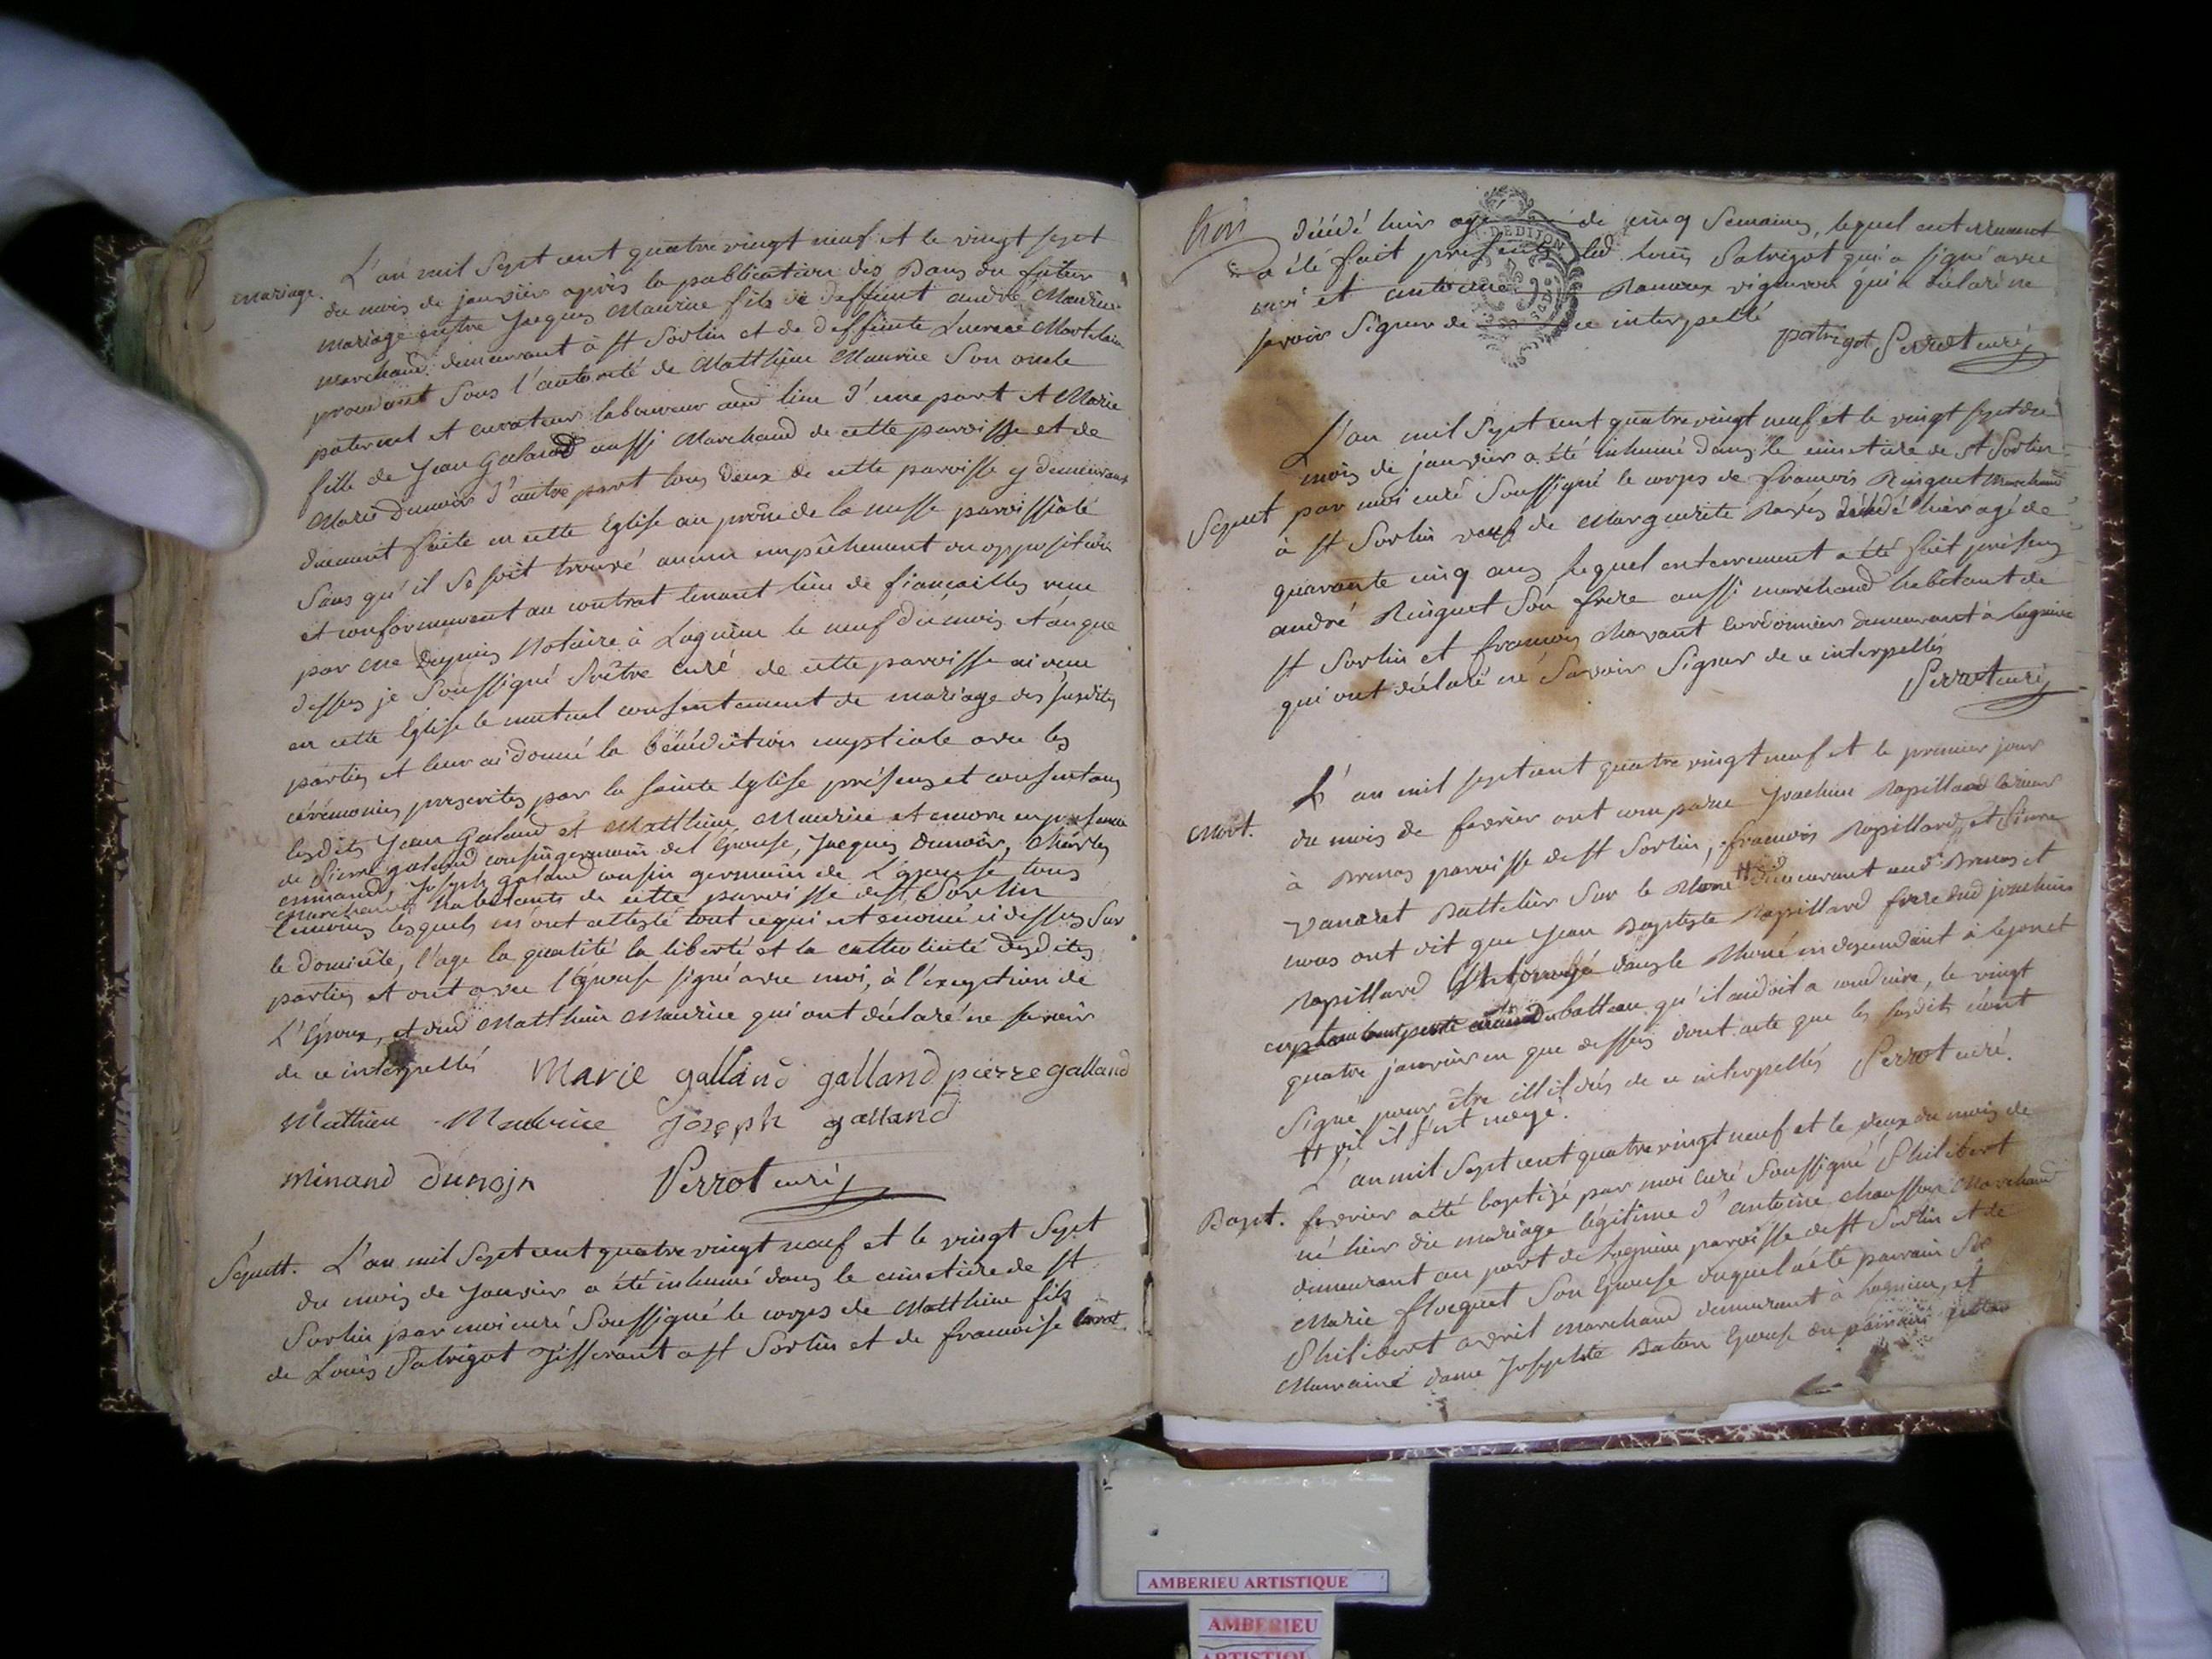 mariage. L'an mil Sept cent quatre vingt neuf et le vingt sept
du mois de janvier après la publication des Bans du futur
mariage entre Jacques Maurice fils de deffunt andré Maurice
marchand demeurant à St Sorlin et de deffunte Lucrece
procedant Sous l'autorité de Matthieu Maurice Son oncle
paternel et curateur laboureur aud lieu d'une part et Marie
fille de Jean Galand aussi Marchand de cette paroisse et de
Marie Dunoir d'autre part tous deux de cette paroisse y demeurant
duement faite en cette Eglise au prône de la messe paroissiale
Sans qu'il Se soit trouvé aucun empêchement ou opposition
et conformement au contrat tenant lieu de fiancailles reçu
par Me Dupuis Notaire à Lagnieu le neuf du mois et an que
dessus je Soussigné Prêtre curé de cette paroisse ai reçu
en cette Eglise le mutuel consentement de mariage des susdites
parties et leur ai donné la bénédiction nuptiale avec les
cérémonies prescrites par la sainte Eglise présens et consentans
lesdits Jean Galand et Matthieu Maurice et encore en présence
de Pierre galand cousin germain de l'Epouse, Jacques Dunoir, Charles
Joseph galand cousin germain de L'epouse tous
Marchands habitants de cette paroisse de St Sorlin
temoins lesquels m'ont attesté tout ce qui est enoncé ci dessus Sur
le domicile, l'age la qualité la liberté et la catholicité desdites
parties et ont avec l'épouse signé avec moi, à l'exception de
L'Epoux, et dud Matthieu Maurice qui ont déclaré ne savoir
de ce interpellés Marie galland galland pierre galland
Mathieu Maurice Joseph galland
minand dunojr Perrot curé
Sepult. L'an mil Sept cent quatre vingt neuf et le vingt Sept
du mois de Janvier a été inhumé dans le cimetière de St
Sorlin par moi curé Soussigné le corps de Matthieu fils
de Louis Patrigot Tisserant a St Sorlin et de francoise
trois décédé hier agé de cinq Semaines, lequel enterrement
a été fait presens led. Louis Patrigot qui a signé avec
moi et antoine Rameux vigneron qui a déclaré ne
savoir Signer de ce interpellé
patrigot Perrot curé
DEDIJON
L'an mil Sept cent quatre vingt neuf et le vingt sept du
mois de janvier a été inhumé dans le cimetière de St Sorlin
Sepult par moi curé Soussigné le corps de francois Ringuet Marchand
à St Sorlin veuf de Marguerite décédé hier agé de
quarante cinq ans, lequel enterrement a été fait présens
andré Ringuet Son frere aussi marchand habitant de
St Sorlin et francois Chavant cordonnier demeurant à Lagnieu
qui ont déclaré ne Savoir Signer de ce interpellés
Perrot curé
L'an mil sept cent quatre vingt neuf et le premier jour
Mort. du mois de fevrier ont comparu Joachim Rapillard
à Brenas paroisse de St Sorlin, francois Rapillard et Pierre
Vanaret Battelier Sur le Rhone # demeurant aud Brenas et
nous ont dit que Jean Baptiste Rapillard frere dud joachim
Rapillard dans le Rhone en descendant à
batteau qu'il aidoit a conduire, le vingt
quatre janvier an que dessus dont acte que les susdits n'ont
Signé pour être illitérés de ce interpellés Perrot curé.
# où il s'est noyé.
L'an mil Sept cent quatre vingt neuf et le deux du mois de
Bapt. fevrier a été baptizé par moi Curé Soussigné Philibert
né hier du mariage légitime d'antoine Marchand
demeurant au port de Lagnieu paroisse de St Sorlin et de
Marie floquet Son Epouse duquel a été parrain Sr
Philibert avril marchand demeurant à Lagnieu, et
Marraine dame Josephte Epouse du parrain
AMBERIEU ARTISTIQUE
AMBERIEU
ARTISTIQUE